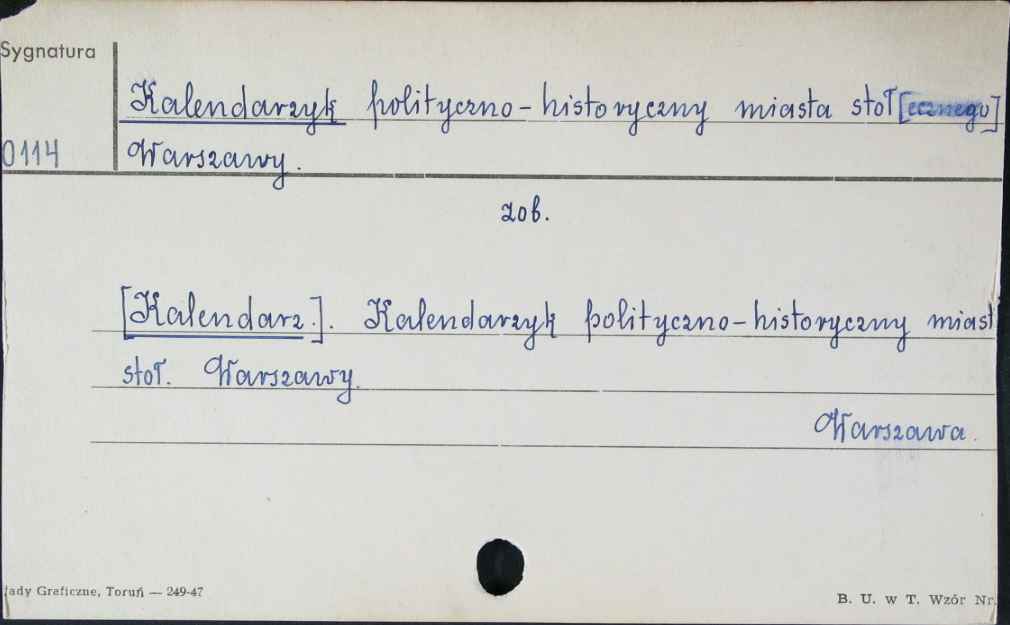 Sygnatura
Kalendarzyk polityczno-historyczny miasta stoł[ecznego]
0114 Warszawy.
zob.
[Kalendarz.]. Kalendarzyk polityczno-historyczny miast
stoł. Warszawy.
Warszawa.
łady Graficzne, Toruń — 249-47
B. U. w T. Wzór Nr.